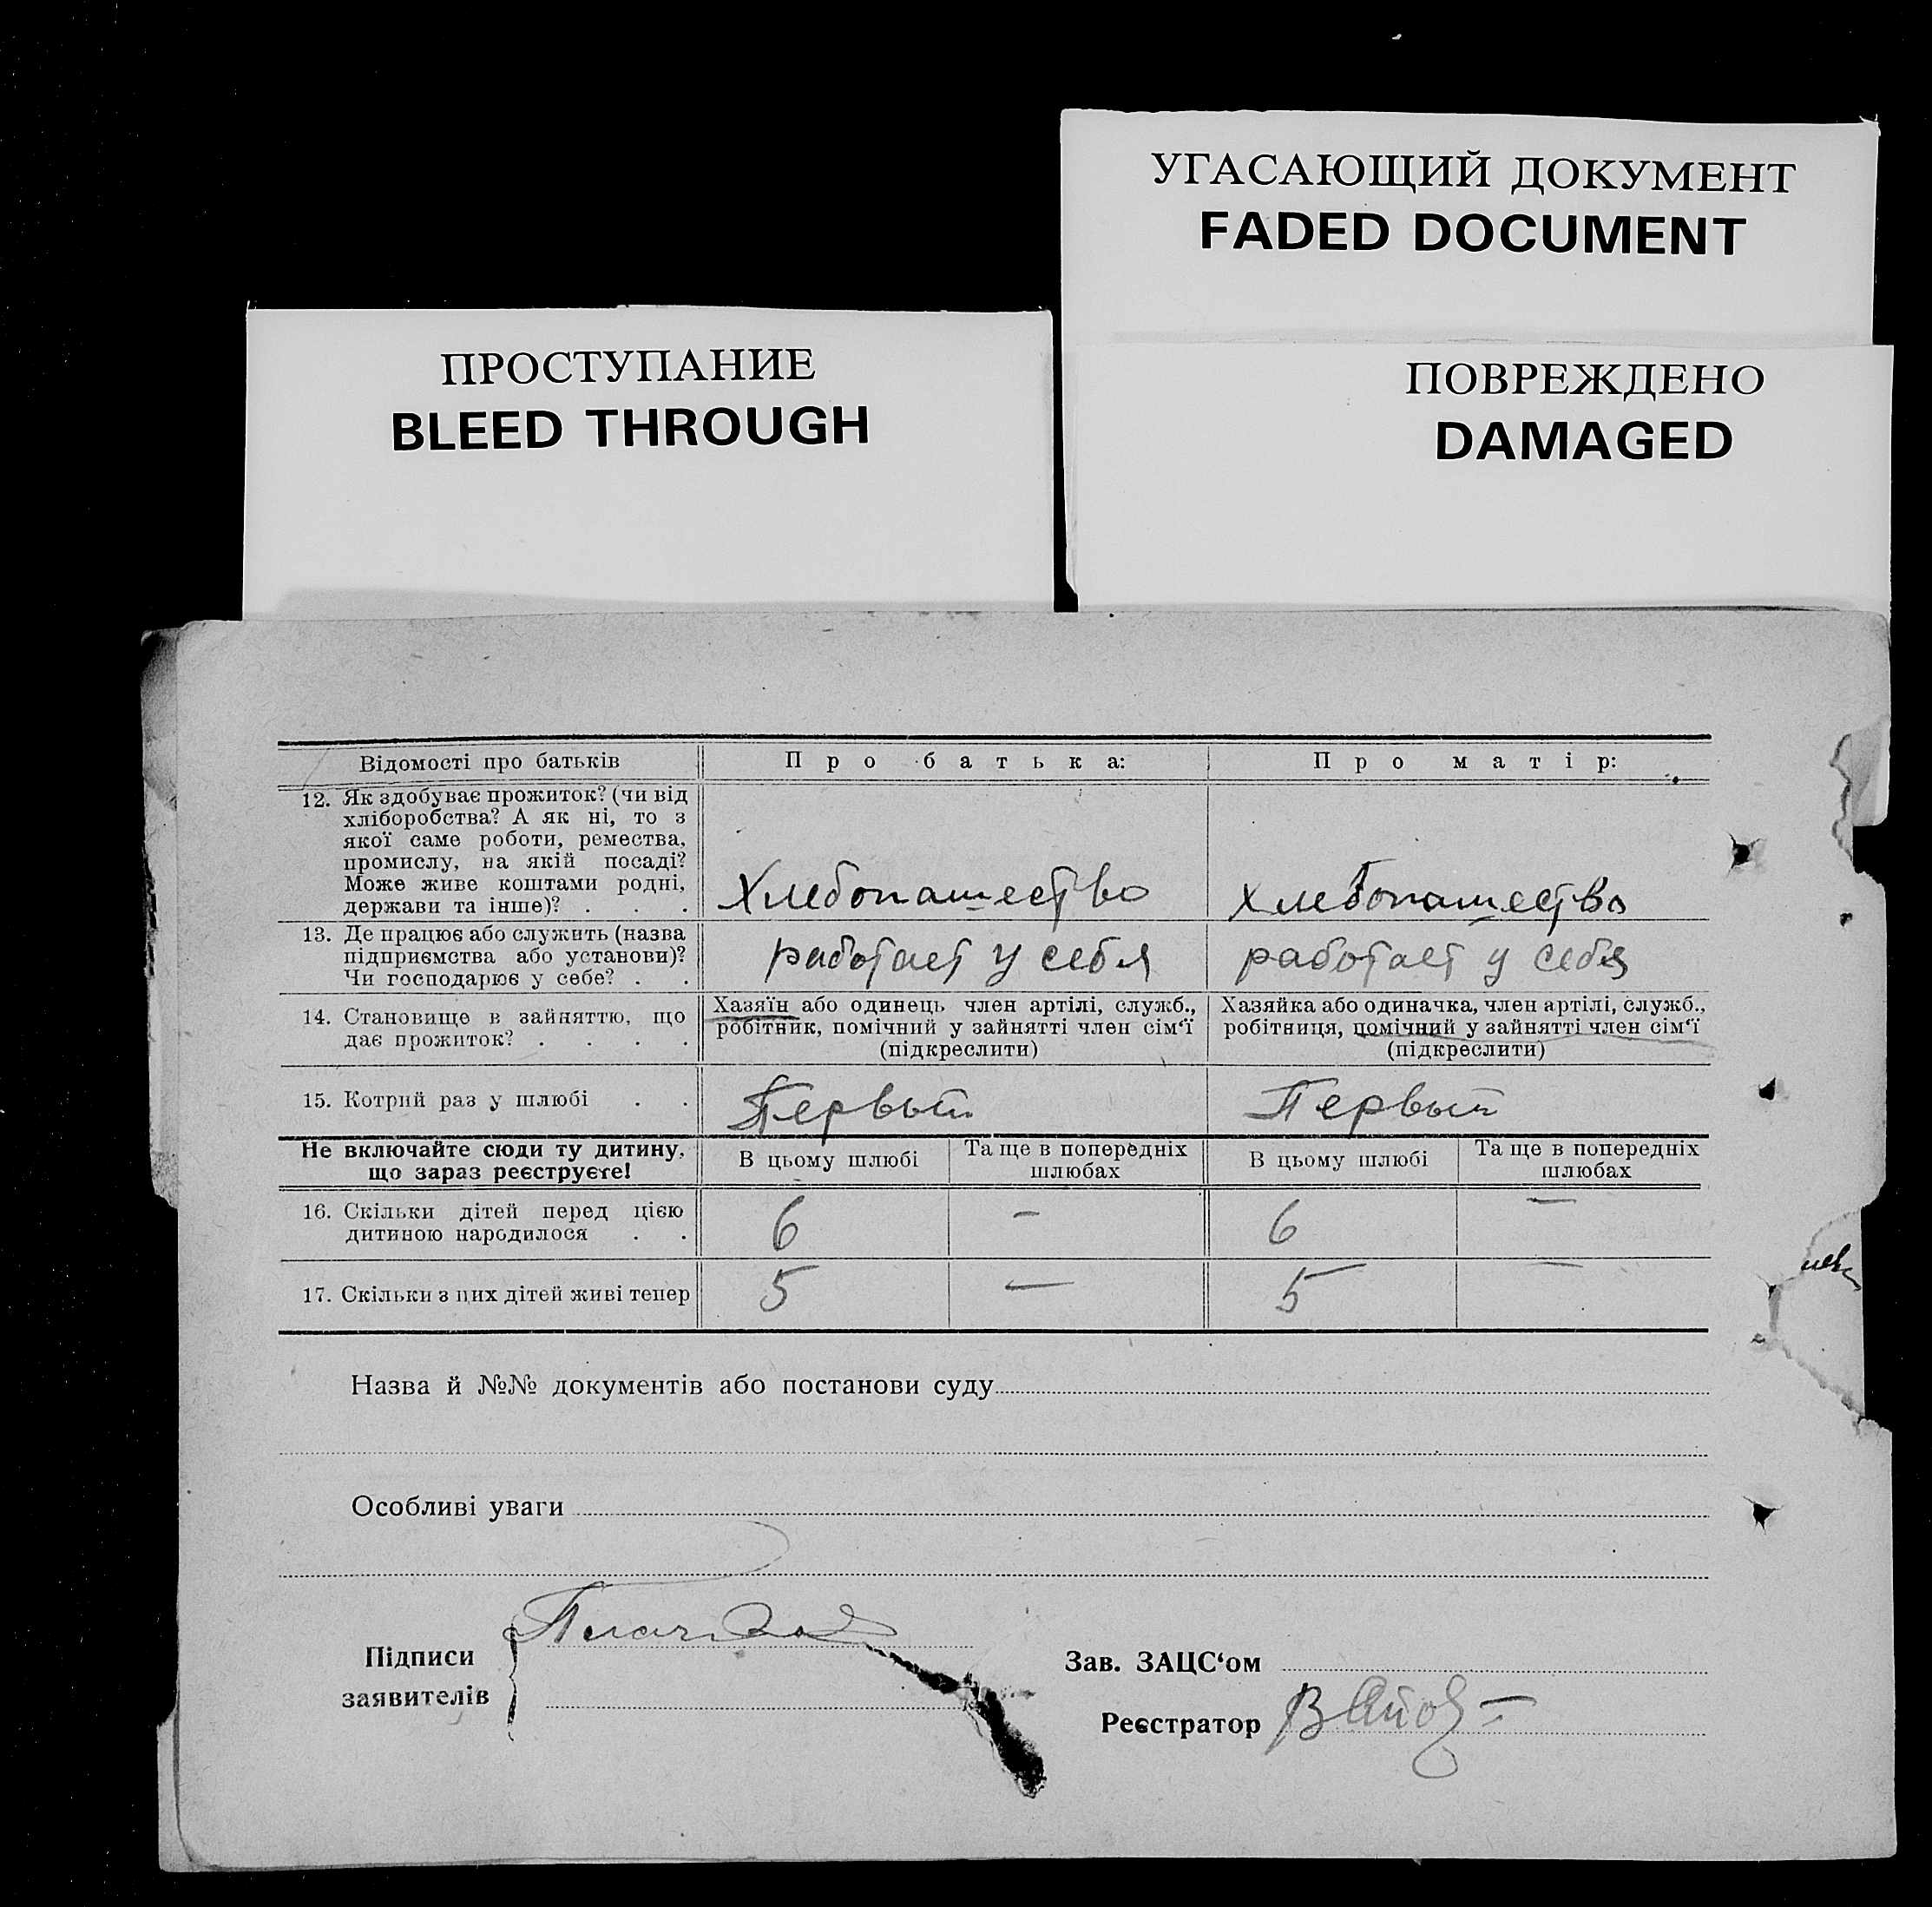 УГАСАЮЩИЙ ДОКУМЕНТ
FADED DOCUMENT
ПРОСТУПАНИЕ
BLEED THROUGH
ПОВРЕЖДЕНО
DAMAGED
Відомості про батьків
Про батька:
Про матір:
12. Як здобуває прожиток? (чи від
хліборобства? А як ні, то з
якої саме роботи, ремества,
промислу, на якій посаді?
Може живе коштами родні,
держави та інше)? . . .
Хлебопашество
Хлебопашество
13. Де працює або служить (назва
підприємства або установи)?
Чи господарює у себе? . .
работает у себя
работает у себя
14. Становище в зайняттю, що
дає прожиток? . . . .
Хазяїн або одинець член артілі, служб.,
робітник, помічний у зайнятті член сім‘ї
(підкреслити)
Хазяйка або одиначка, член артілі, служб.,
робітниця, помічний у зайнятті член сім‘ї
(підкреслити)
15. Котрий раз у шлюбі . .
Первый
Первый
Не включайте сюди ту дитину,
що зараз реєструєте!
В цьому шлюбі
Та ще в попередніх
шлюбах
В цьому шлюбі
Та ще в попередніх
шлюбах
16. Скільки дітей перед цією
дитиною народилося . .
6
—
6
—
17. Скільки з цих дітей живі тепер
5
—
5
—
Назва й №№ документів або постанови суду
Особливі уваги
Підписи
заявителів
Зав. ЗАЦС‘ом
Реєстратор